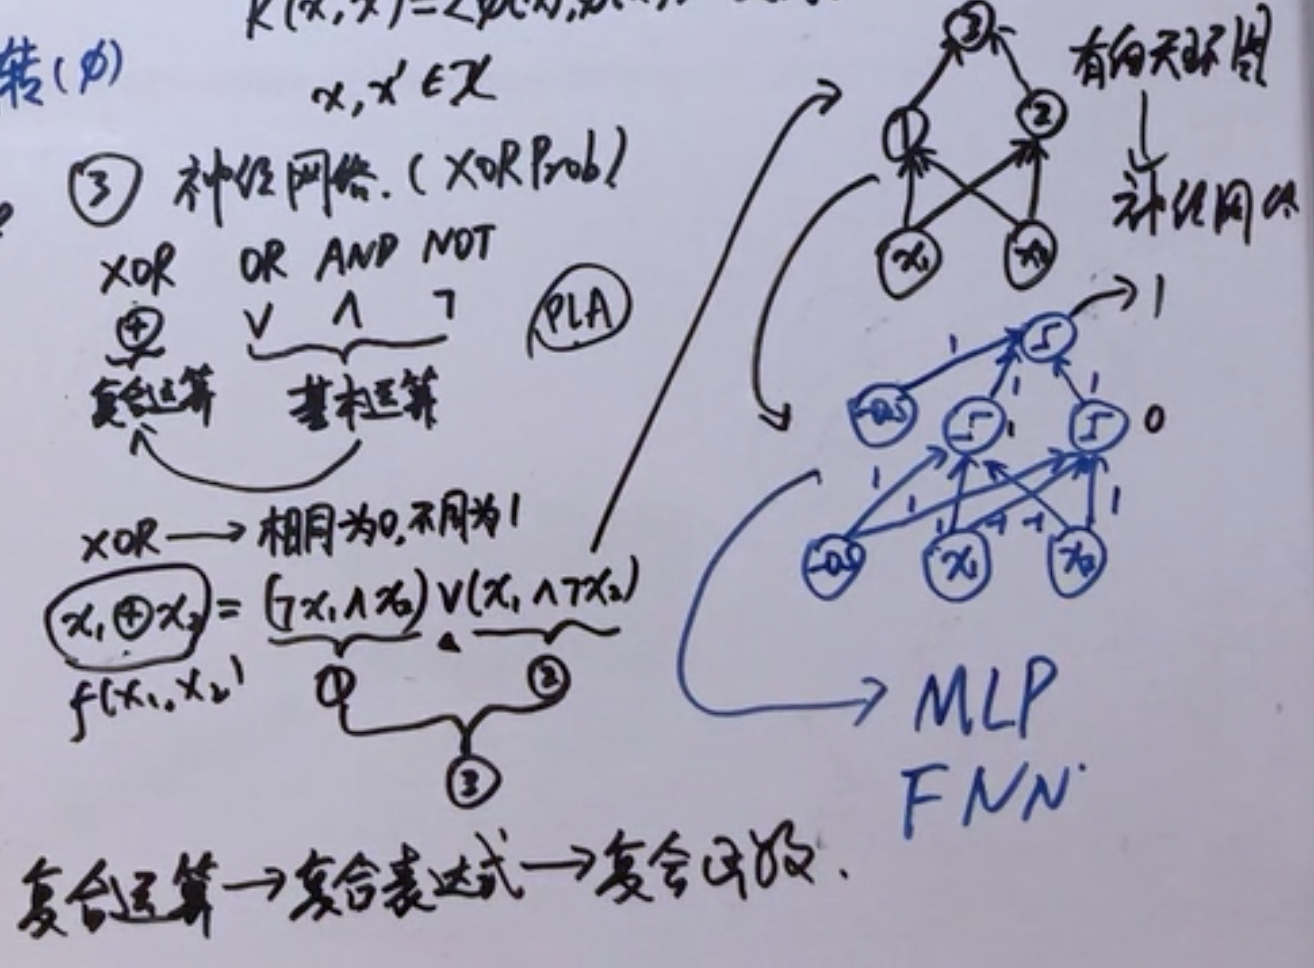 转(φ)
x, x' ∈ X
③ 神经网络. (XOR Prob)
XOR OR AND NOT
⊕ ∨ ∧ ¬
PLA
复合运算 基本运算
XOR → 相同为0, 不同为1
x₁ ⊕ x₂ = (¬x₁ ∧ x₂) ∨ (x₁ ∧ ¬x₂)
f(x₁, x₂)
① ②
③
复合运算 → 复合表达式 → 复合函数.
③
① ②
x₁ x₂
有向无环图
↓
神经网络
→ 1
1
-0.5 1 1
1 0
1 1 1 -1 -1 1
-0.5 x₁ x₂
MLP
FNN